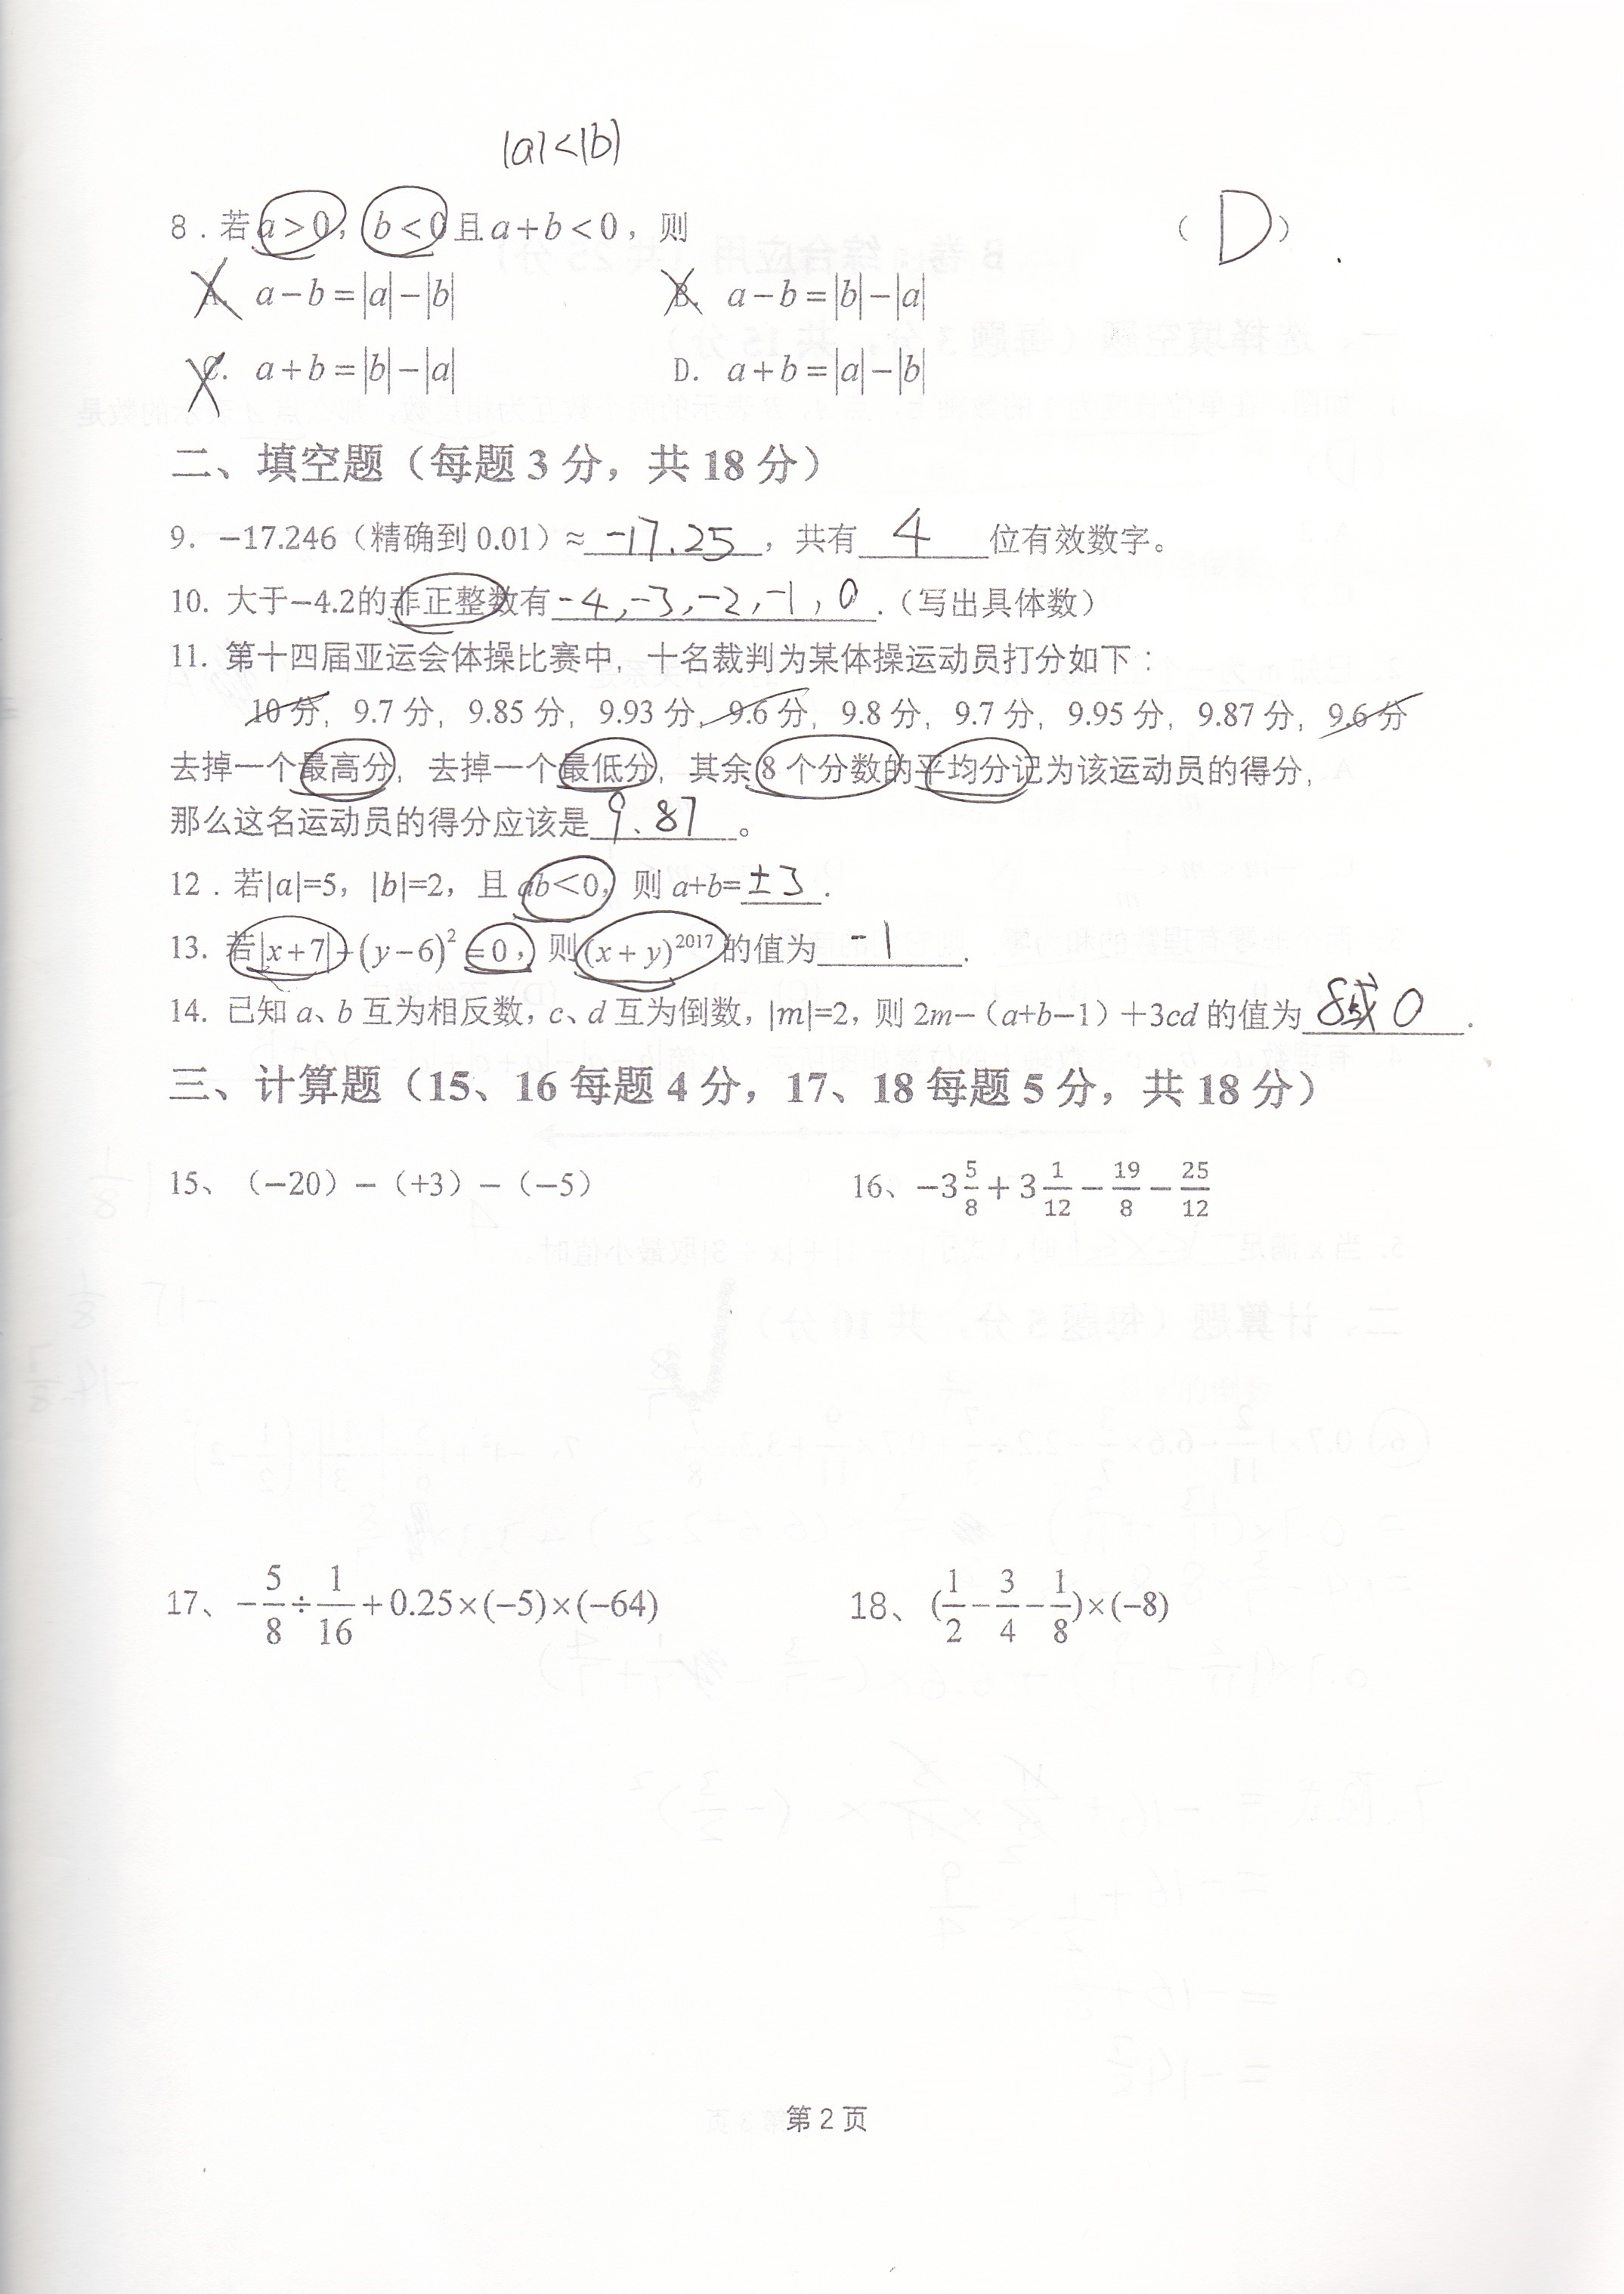 |a|<|b|
8．若 a>0，b<0 且 a+b<0，则 （ D ）
A. a−b=|a|−|b| B. a−b=|b|−|a|
C. a+b=|b|−|a| D. a+b=|a|−|b|
二、填空题（每题 3 分，共 18 分）
9. −17.246（精确到 0.01）≈ -17.25 ，共有 4 位有效数字。
10. 大于−4.2的非正整数有 -4,-3,-2,-1,0 .（写出具体数）
11. 第十四届亚运会体操比赛中，十名裁判为某体操运动员打分如下：
10 分，9.7 分，9.85 分，9.93 分，9.6 分，9.8 分，9.7 分，9.95 分，9.87 分，9.6 分
去掉一个最高分，去掉一个最低分，其余 8 个分数的平均分记为该运动员的得分，
那么这名运动员的得分应该是 9.87 。
12．若|a|=5，|b|=2，且 ab<0，则 a+b= ±3 .
13. 若|x+7|+(y−6)²=0，则(x+y)²⁰¹⁷的值为 -1 .
14. 已知 a、b 互为相反数，c、d 互为倒数，|m|=2，则 2m−（a+b−1）+3cd 的值为 8或0 .
三、计算题（15、16 每题 4 分，17、18 每题 5 分，共 18 分）
15、（−20）−（+3）−（−5） 16、−3 5/8 + 3 1/12 − 19/8 − 25/12
17、−5/8÷1/16+0.25×(−5)×(−64) 18、(1/2−3/4−1/8)×(−8)
第 2 页